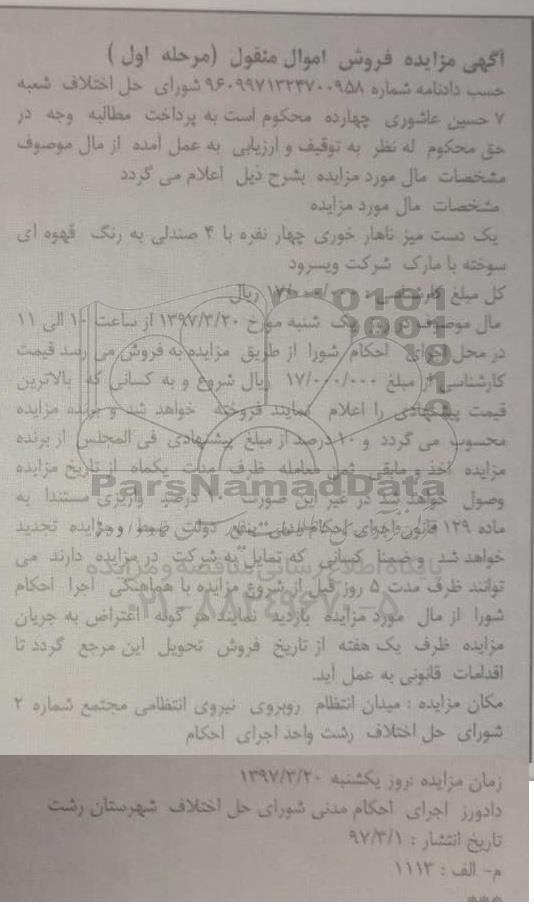 آگهی مزایده فروش اموال منقول (مرحله اول)
حسب دادنامه شماره ۹۶۰۹۹۷۱۳۲۴۷۰۰۹۵۸ شورای حل اختلاف شعبه
۷ حسین عاشوری چهارده محکوم است به پرداخت مطالبه وجه در
حق محکوم له نظر به توقیف و ارزیابی به عمل آمده از مال موصوف
مشخصات مال مورد مزایده بشرح ذیل اعلام می گردد
مشخصات مال مورد مزایده
یک دست میز ناهار خوری چهار نفره با ۴ صندلی به رنگ قهوه ای
سوخته با مارک شرکت ویسرود
کل مبلغ کارشناسی: ۱۷/۰۰۰/۰۰۰ ریال
مال موصوف در روز یک شنبه مورخ ۱۳۹۷/۳/۲۰ از ساعت ۱۰ الی ۱۱
در محل اجرای احکام شورا از طریق مزایده به فروش می رسد قیمت
کارشناسی از مبلغ ۱۷/۰۰۰/۰۰۰ ریال شروع و به کسانی که بالاترین
قیمت پیشنهادی را اعلام نمایند فروخته خواهد شد و برنده مزایده
محسوب می گردد و ۱۰ درصد از مبلغ پیشنهادی فی المجلس از برنده
مزایده اخذ و مابقی ثمن معامله ظرف مدت یکماه از تاریخ مزایده
وصول خواهد شد در غیر این صورت ۱۰ درصد واریزی مستندا به
ماده ۱۲۹ قانون اجرای احکام مدنی بنفع دولت ضبط و مزایده تجدید
خواهد شد و ضمنا کسانی که تمایل به شرکت در مزایده دارند می
توانند ظرف مدت ۵ روز قبل از شروع مزایده با هماهنگی اجرا احکام
شورا از مال مورد مزایده بازدید نمایند هر گونه اعتراض به جریان
مزایده ظرف یک هفته از تاریخ فروش تحویل این مرجع گردد تا
اقدامات قانونی به عمل آید.
مکان مزایده : میدان انتظام روبروی نیروی انتظامی مجتمع شماره ۲
شورای حل اختلاف رشت واحد اجرای احکام
زمان مزایده :روز یکشنبه ۱۳۹۷/۳/۲۰
دادورز اجرای احکام مدنی شورای حل اختلاف شهرستان رشت
تاریخ انتشار : ۹۷/۳/۱
م- الف : ۱۱۱۳
***
ParsNamadData
پایگاه اطلاع رسانی مناقصه و مزایده
۰۲۱-۸۸۳۴۹۶۷۰-۵